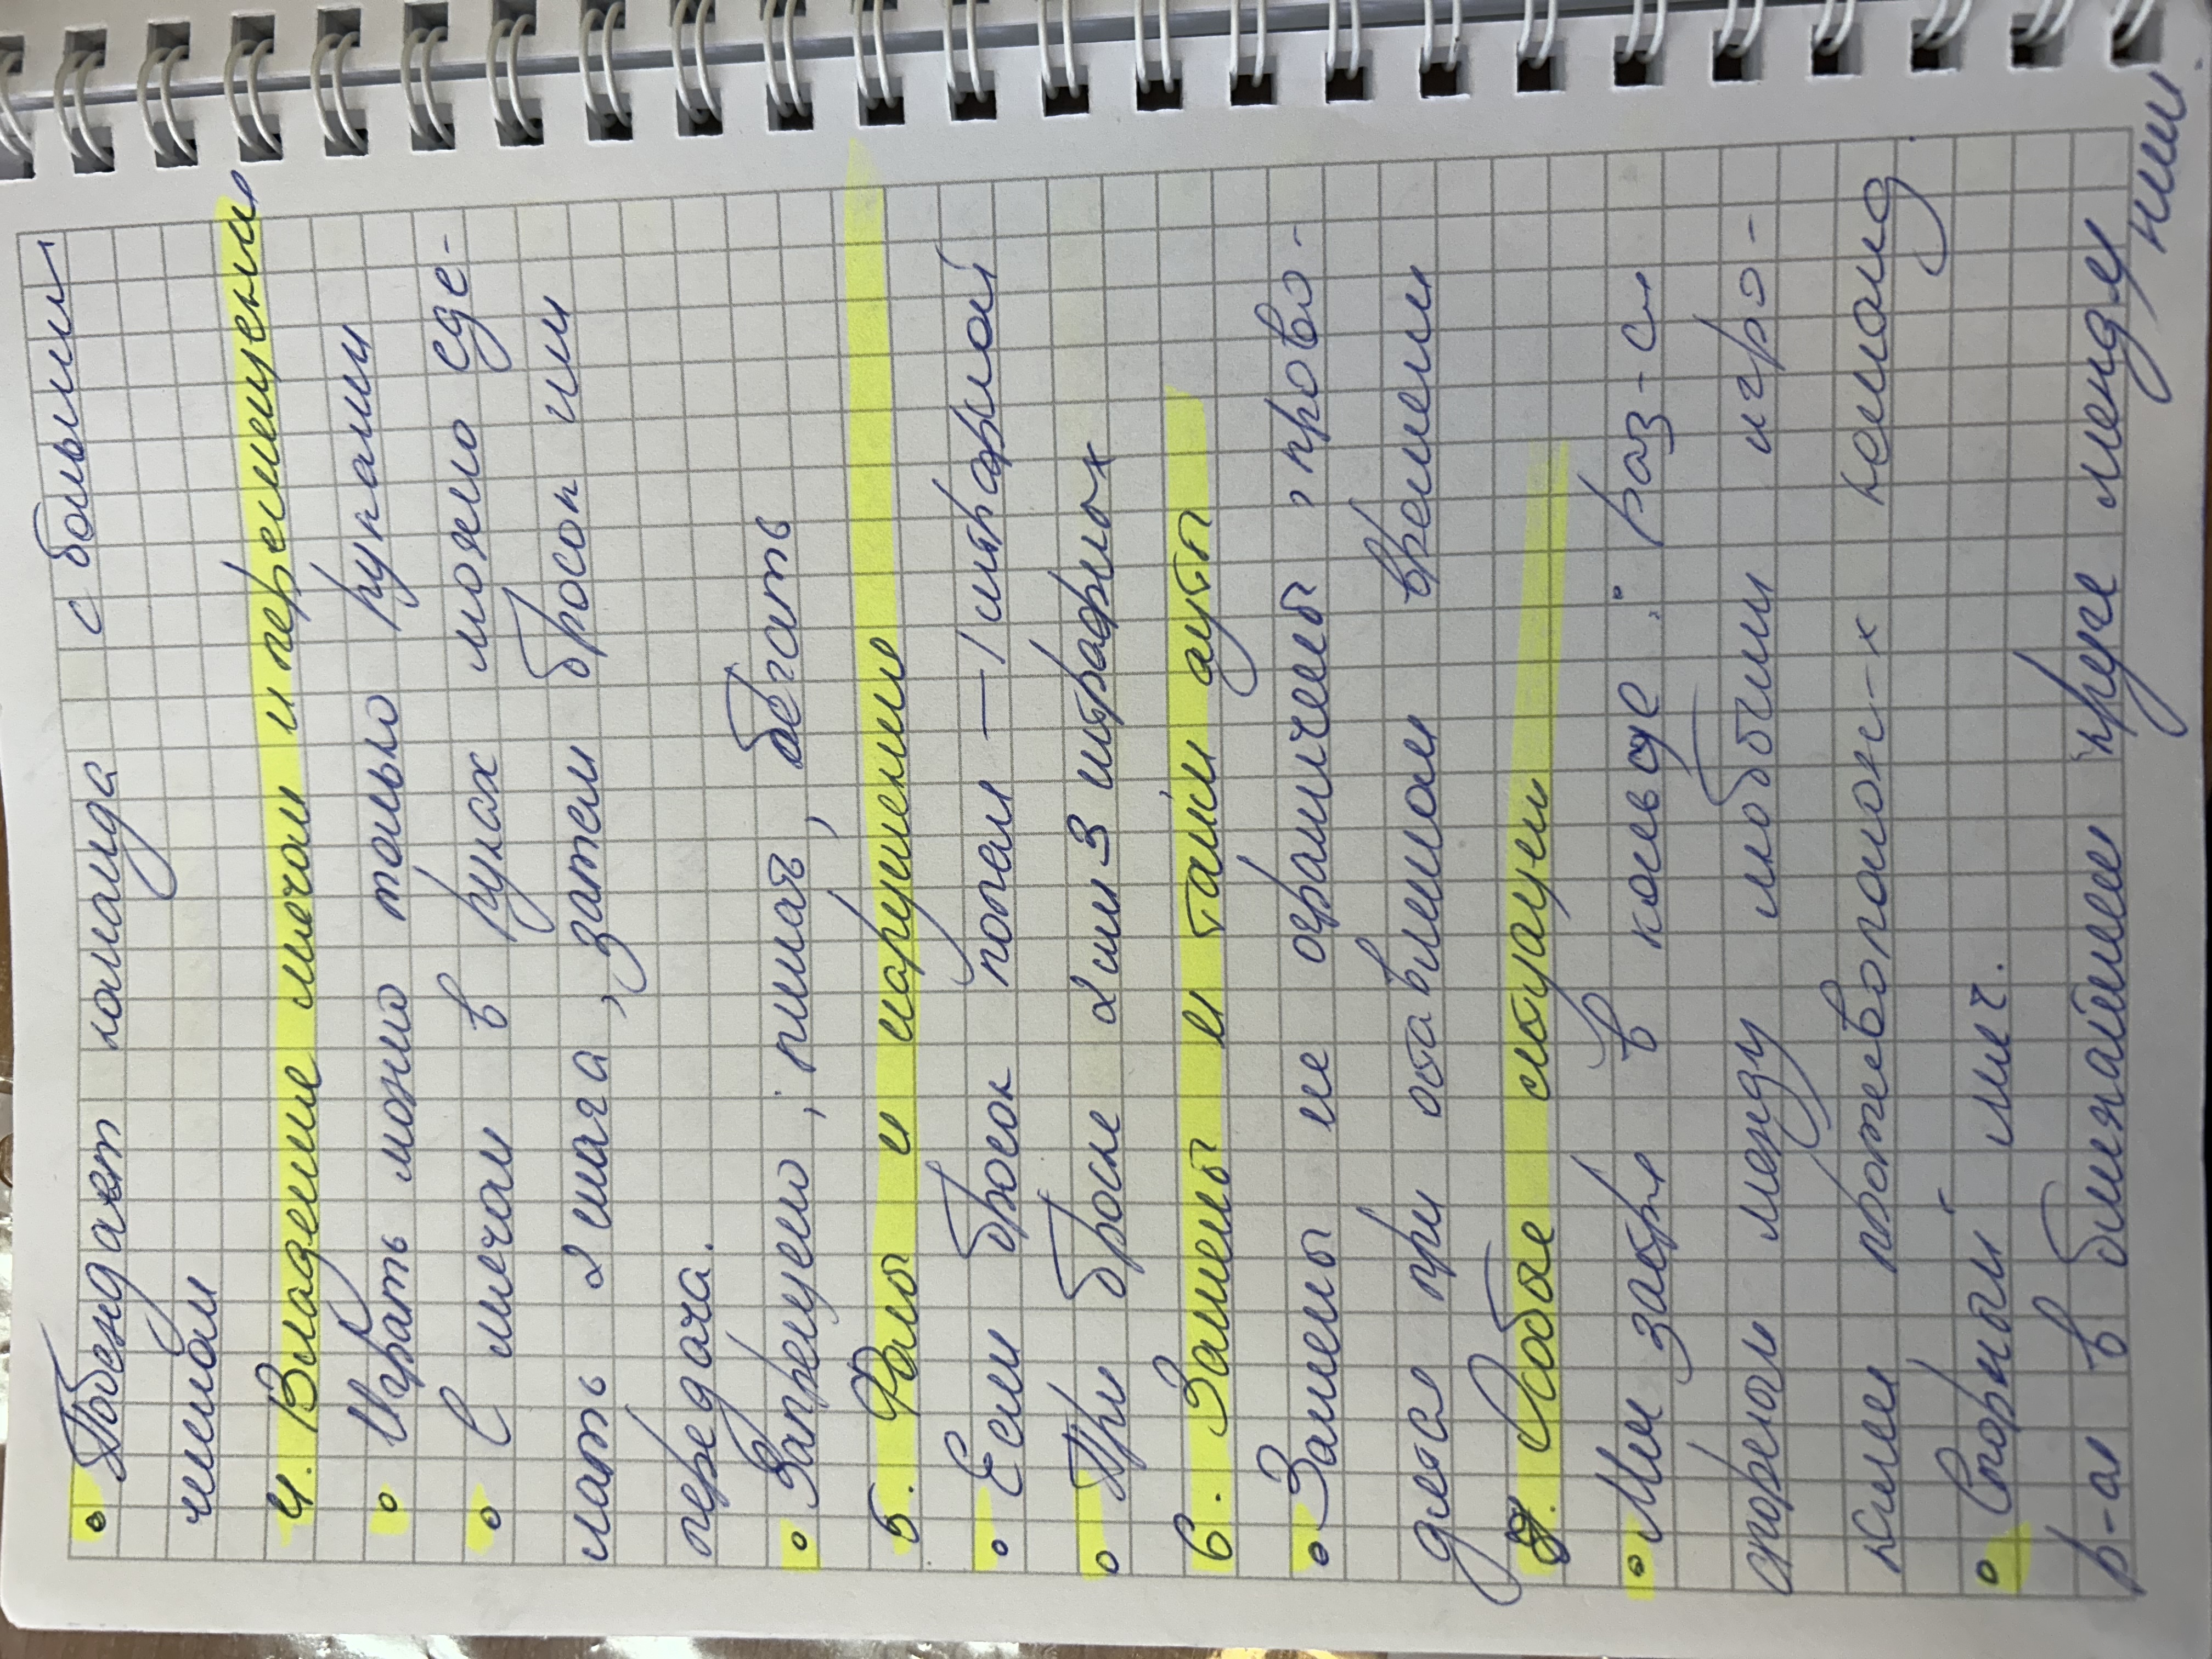 • Побеждает команда с большим
числом
4. Владение мячом и перемещени
• Играть можно только руками
• С мячом в руках можно сде-
лать 2 шага, затем бросок или
передача.
• Запрещено; пинать, бегать
5. Фолы и нарушению
• Если бросок попал — 1 штрафной
• При броске 2 или 3 штрафных
6. Замены и тайм ауты
• Замены не ограничены, прово-
дятся при оставлином времени
7. Особые ситуации
• Мяч застрял в кольце: раз-ся
спорным между любыми игро-
ками противополож-х команд.
• Спорный мяч.
р-ая в ближайшем круге между
ними